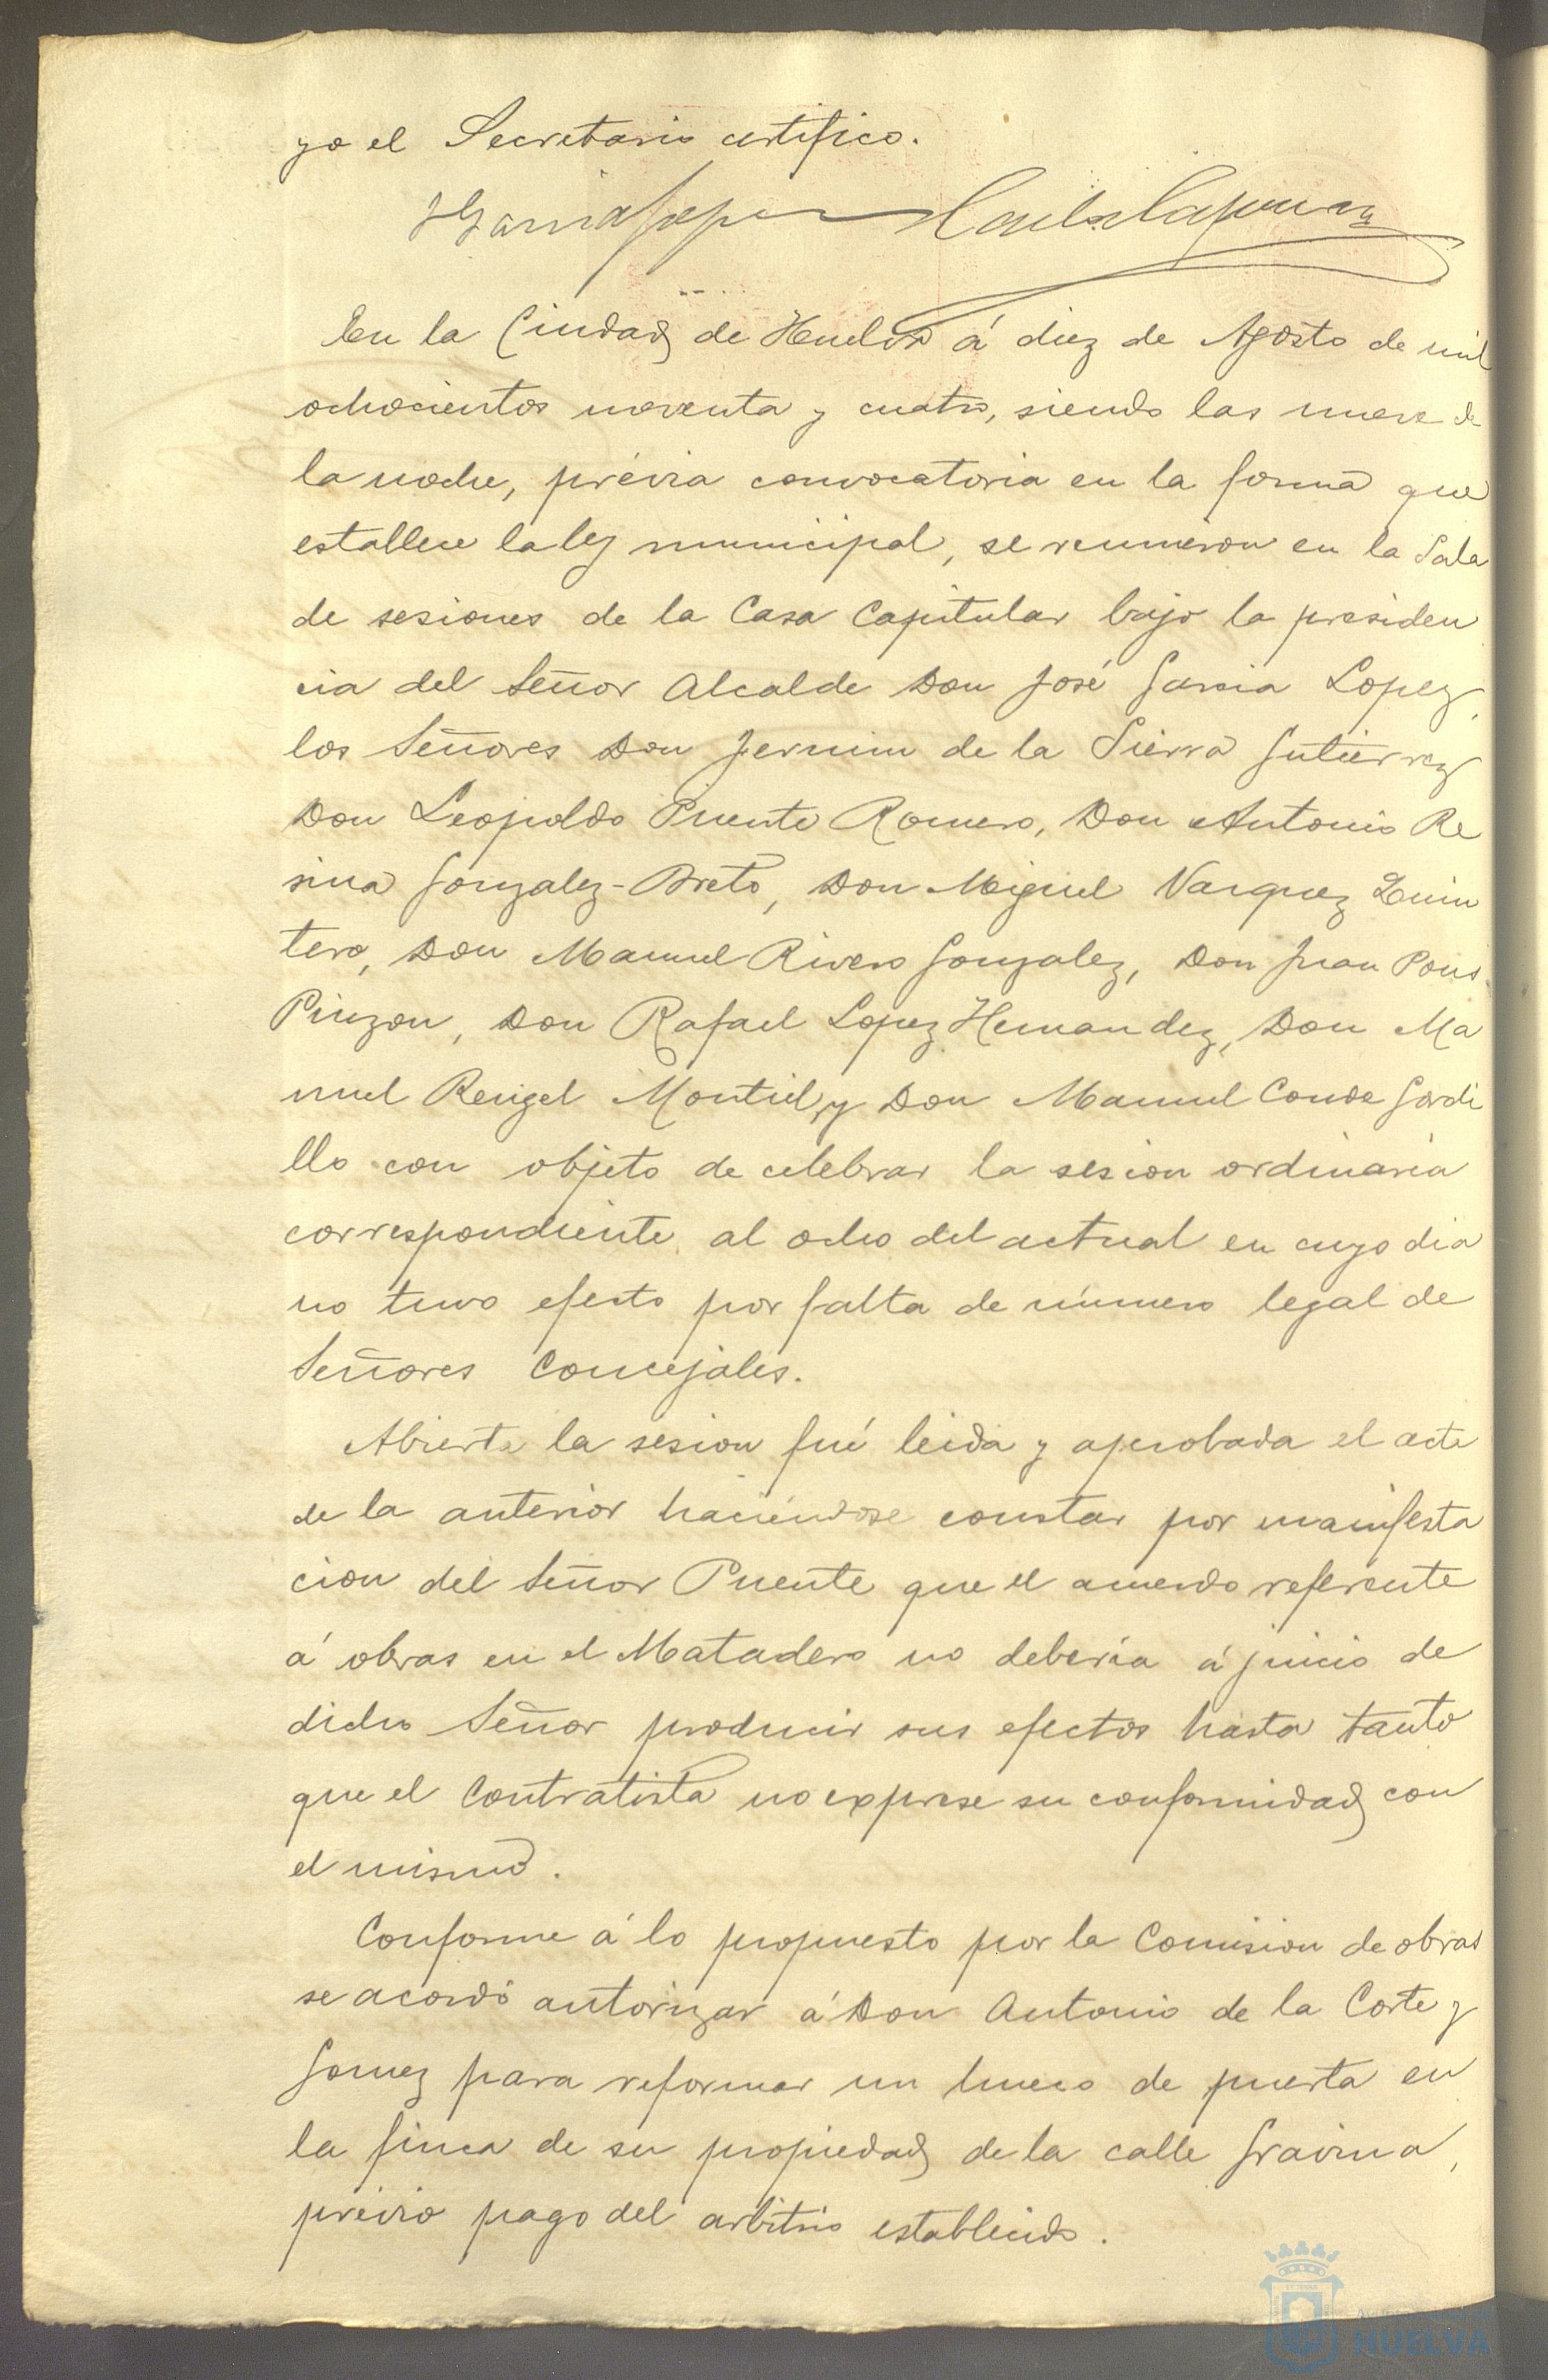 yo el Secretario certifico.
En la Ciudad de Huelva á diez de Agosto de mil
ochocientos noventa y cuatro, siendo las nueve de
la noche, prévia convocatoria en la forma que
establece la ley municipal, se reunieron en la Sala
de sesiones de la Casa Capitular bajo la presiden
cia del Señor Alcalde Don José Garcia Lopez,
los Señores Don Fermin de la Sierra Gutierrez
Don Leopoldo Puente Romero, Don Antonio Re
sina Gonzalez-Breto, Don Miguel Vazquez Quin
tero, Don Manuel Rivero Gonzalez, Don Juan Pons
Pinzon, Don Rafael Lopez Hernandez, Don Ma
nuel Rengel Montiel, y Don Manuel Conde Gordi
llo con objeto de celebrar la sesion ordinaria
correspondiente al ocho del actual en cuyo dia
no tuvo efecto por falta de número legal de
Señores Concejales.
Abierta la sesion fué leida y aprobada el acta
de la anterior haciéndose constar por manifesta
cion del Señor Puente que el acuerdo referente
á obras en el Matadero no deberia á juicio de
dicho Señor producir sus efectos hasta tanto
que el Contratista no exprese su conformidad con
el mismo.
Conforme á lo propuesto por la Comision de obras
se acordó autorizar á Don Antonio de la Corte y
Gomez para reformar un hueco de puerta en
la finca de su propiedad de la calle Gravina,
prévio pago del arbitrio establecido.
HUELVA